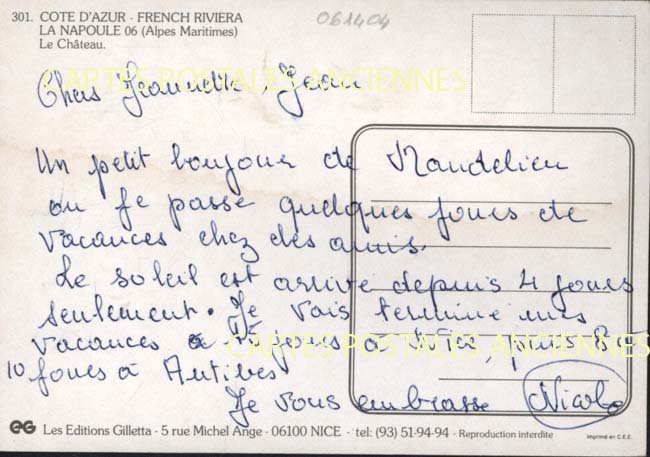 301. COTE D'AZUR - FRENCH RIVIERA
LA NAPOULE 06 (Alpes Maritimes)
Le Château.
061404
CARTES POSTALES ANCIENNES
Chers Jeannette Jean
Un petit bonjour de Mandelieu
ou je passe quelques jours de
vacances chez des amis.
Le soleil est arrivé depuis 4 jours
seulement. Je vais terminé mes
vacances à jours à puis 8 à
CARTES POSTALES ANCIENNES
10 jours à Antibes
Je vous embrasse Nicole
EG Les Editions Gilletta - 5 rue Michel Ange - 06100 NICE - tel: (93) 51-94-94 - Reproduction interdite
Imprimé en C.E.E.